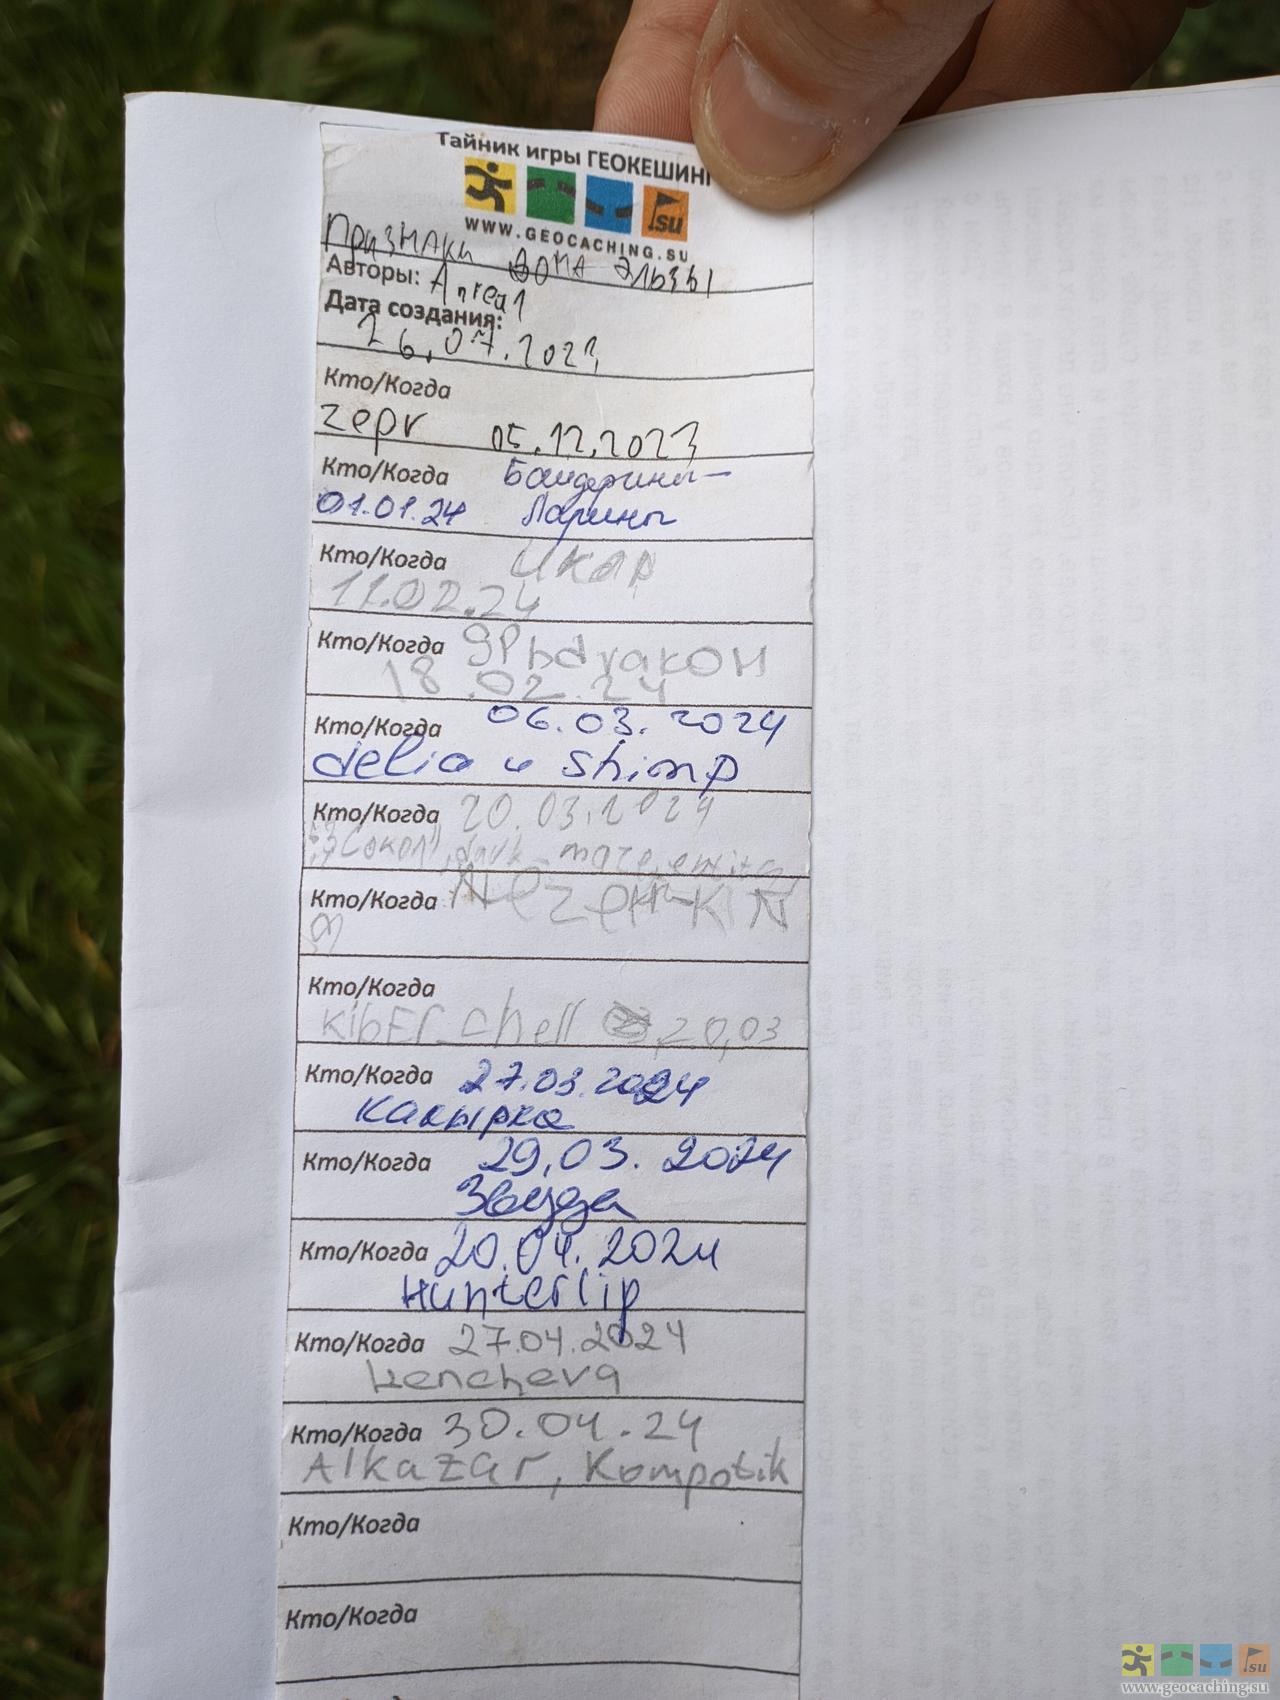 Тайник игры ГЕОКЕШИНГ
su
WWW.GEOCACHING.SU
Признаки дома Эльзы
Авторы: Anrea1
Дата создания:
26.07.2023
Кто/Когда
zepr 05.12.2023
Кто/Когда Бандерины-
01.01.24 Ларины
Кто/Когда Икар
11.02.24
Кто/Когда
18.02.24
Кто/Когда 06.03.2024
delia и shimp
Кто/Когда 20.03.2024
"Сокол", dark_maze,
Кто/Когда
Кто/Когда
KibEr_chell 20,03
Кто/Когда 27.03.2024
Каңырка
Кто/Когда 29,03.2024
Звезда
Кто/Когда 20.04.2024
Hunterlip
Кто/Когда 27.04.2024
kencheva
Кто/Когда 30.04.24
Alkazar, Kompotik
Кто/Когда
Кто/Когда
Кто/Когда
su
www.geocaching.su